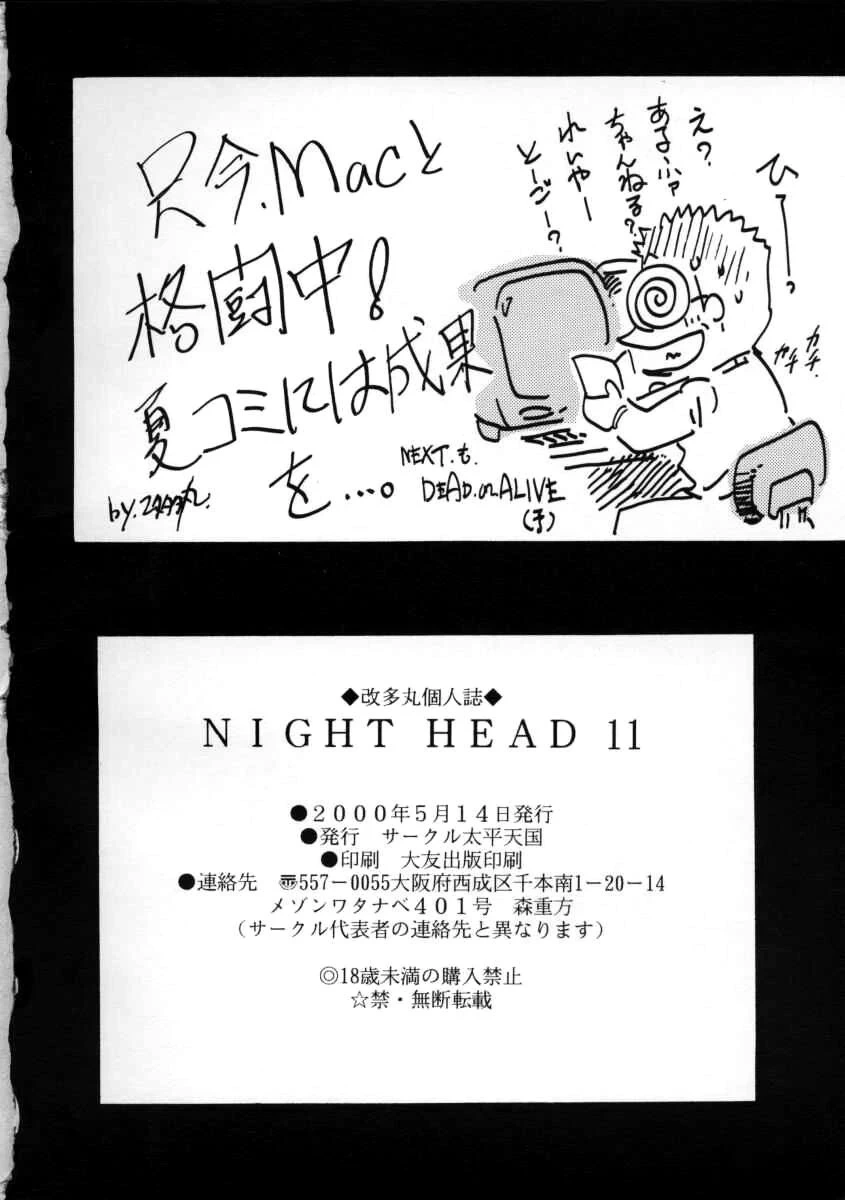 只今.Macと
格闘中!
夏コミには成果
を…。
NEXT.も.
DEAD.or ALIVE
(予)
え?
あるふァ
ちゃんねる?
れいやー
とーごー?
ひーっ
カチ
カチ.
◆改多丸個人誌◆
NIGHT HEAD 11
●2000年5月14日発行
●発行 サークル太平天国
●印刷 大友出版印刷
●連絡先 〠557-0055大阪府西成区千本南1-20-14
メゾンワタナベ401号 森重方
(サークル代表者の連絡先と異なります)
◎18歳未満の購入禁止
☆禁・無断転載